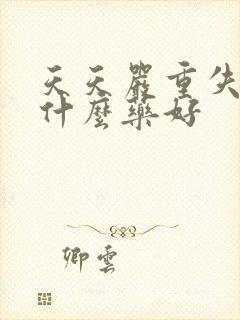 天天嚴重失
什麼藥好
卿雲